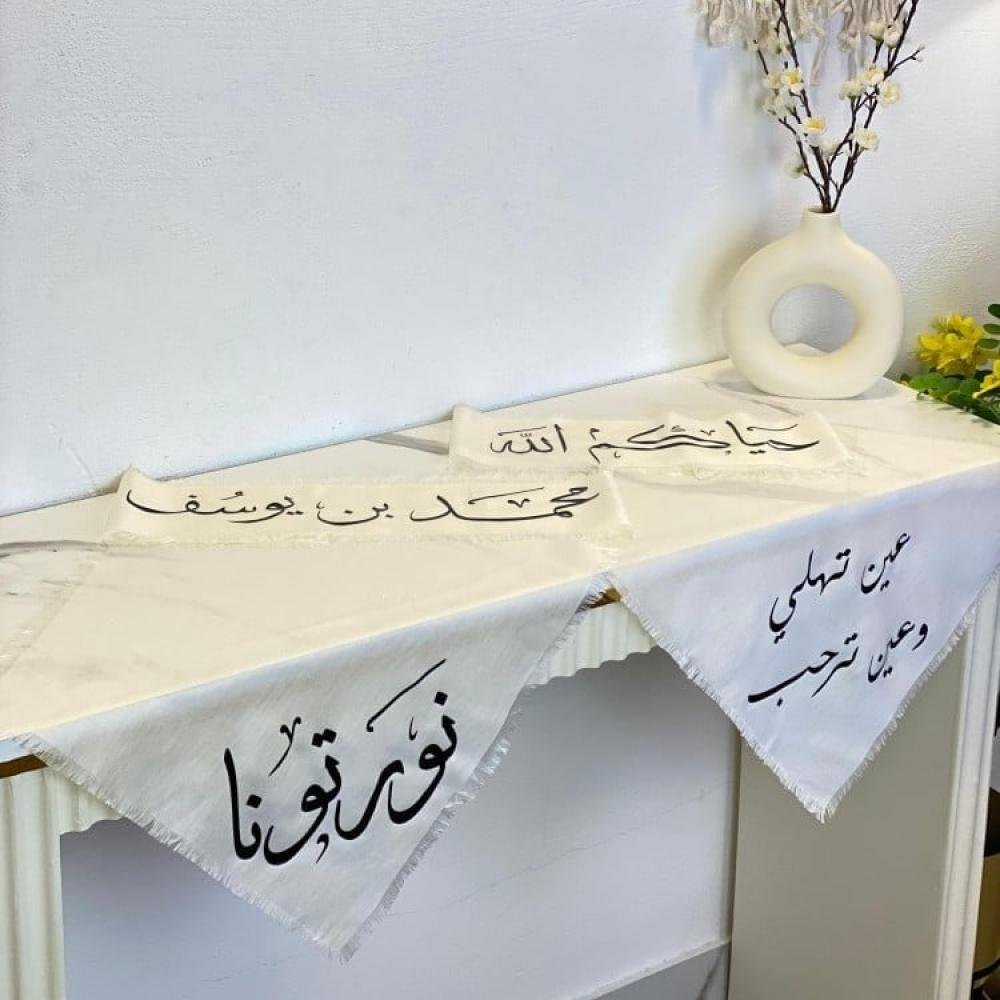 حياكم الله
محمد بن يوسف
عين تهلي
وعين ترحب
نورتونا